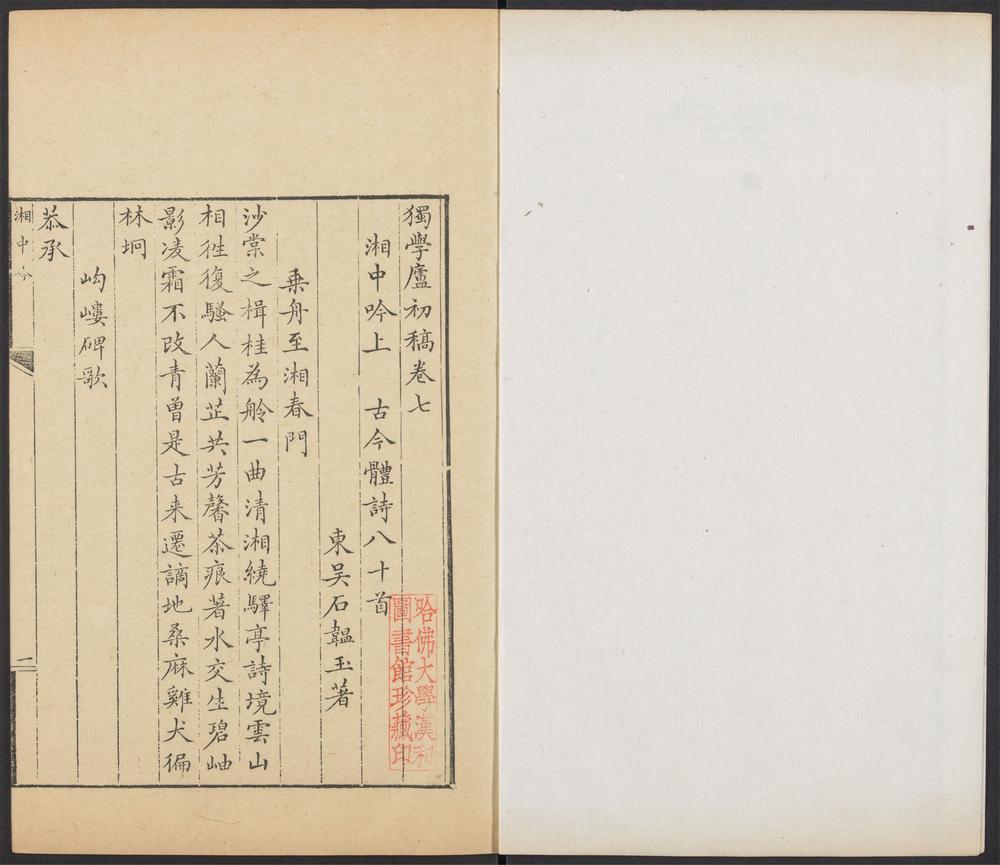 獨學廬初稿卷七
湘中吟上　古今體詩八十首
東吴石韞玉著
乗舟至湘春門
沙棠之楫桂為舲一曲清湘繞驛亭詩境雲山
相徃復騷人蘭芷共芳馨茶痕著水交生碧岫
影凌霜不改青曾是古来遷謫地桑麻雞犬徧
林坰
岣嶁碑歌
恭承
湘中吟
二
哈佛大學漢和
圖書館珍藏印